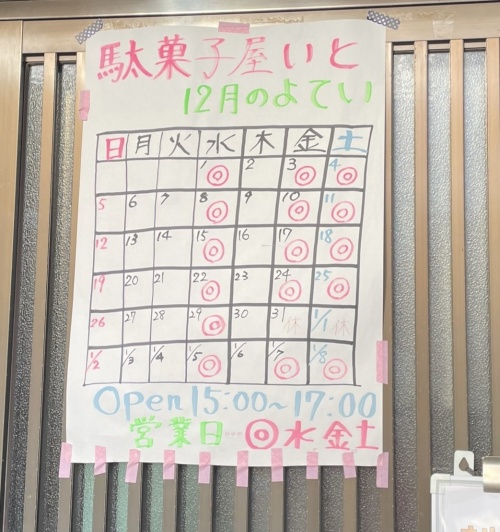 駄菓子屋いと
12月のよてい
日 月 火 水 木 金 土
1◎ 2 3◎ 4◎
5 6 7 8◎ 9 10◎ 11◎
12 13 14 15◎ 16 17◎ 18◎
19 20 21 22◎ 23 24◎ 25◎
26 27 28 29◎ 30 31休 1/1休
1/2 1/3 1/4 1/5◎ 1/6 1/7◎ 1/8◎
Open 15:00~17:00
営業日…◎水金土